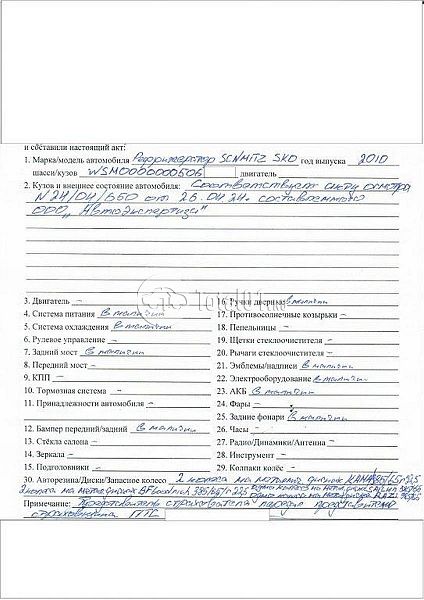 и составили настоящий акт:
1. Марка/модель автомобиля Рефрижератор SCHMITZ SKO год выпуска 2010
шасси/кузов WSM0000000506 двигатель
2. Кузов и внешнее состояние автомобиля: Соответствует акту осмотра
N 24/04/550 от 26.04.24. составленного
ООО „Автоэкспертиза"
3. Двигатель –
4. Система питания в наличии
5. Система охлаждения в наличии
6. Рулевое управление –
7. Задний мост в наличии
8. Передний мост –
9. КПП –
10. Тормозная система –
11. Принадлежности автомобиля –
12. Бампер передний/задний в наличии
13. Стёкла салона –
14. Зеркала –
15. Подголовники –
16. Ручки дверные в наличии
17. Противосолнечные козырьки –
18. Пепельницы –
19. Щетки стеклоочистителя –
20. Рычаги стеклоочистителя –
21. Эмблемы/надписи в наличии
22. Электрооборудование в наличии
23. АКБ в наличии
24. Фары –
25. Задние фонари в наличии
26. Часы –
27. Радио/Динамики/Антенна –
28. Инструмент –
29. Колпаки колёс –
30. Авторезина/Диски/Запасное колесо 2 колеса на метал. дисках
2 колеса на метал. дисках BFGoodrich 385/65 r 22,5
Примечание: Представитель страхователя передал представителю
страховщика ПТС